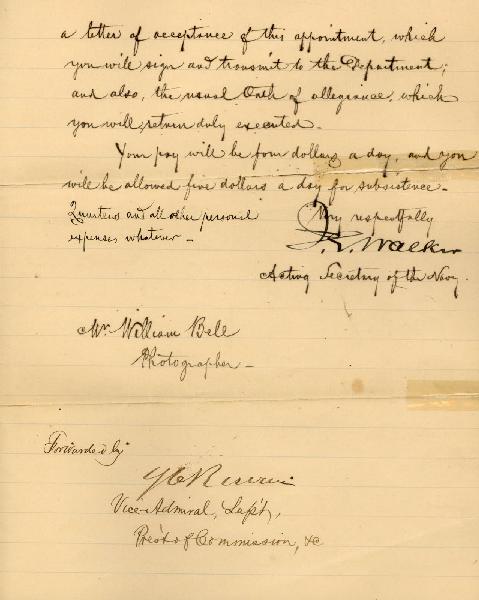 a letter of acceptance of this appointment, which
you will sign and transmit to the Department;
and also, the usual Oath of allegiance, which
you will return duly executed.
Your pay will be four dollars a day, and you
will be allowed five dollars a day for subsistence -
Quarters and all other personal
expenses whatever -
Very respectfully
J. G. Walker
Acting Secretary of the Navy.
Mr. William Bell
Photographer -
Forwarded by
Vice-Admiral, Sup't,
Pres't of Commission, &c